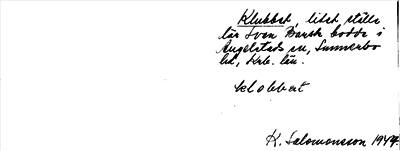 Klubbet, litet ställe
där Sven Barsk bodde i
Angelstads sn, Sunnerbo
hd, Krb. län.
klobbat
K. Salomonsson 1944.